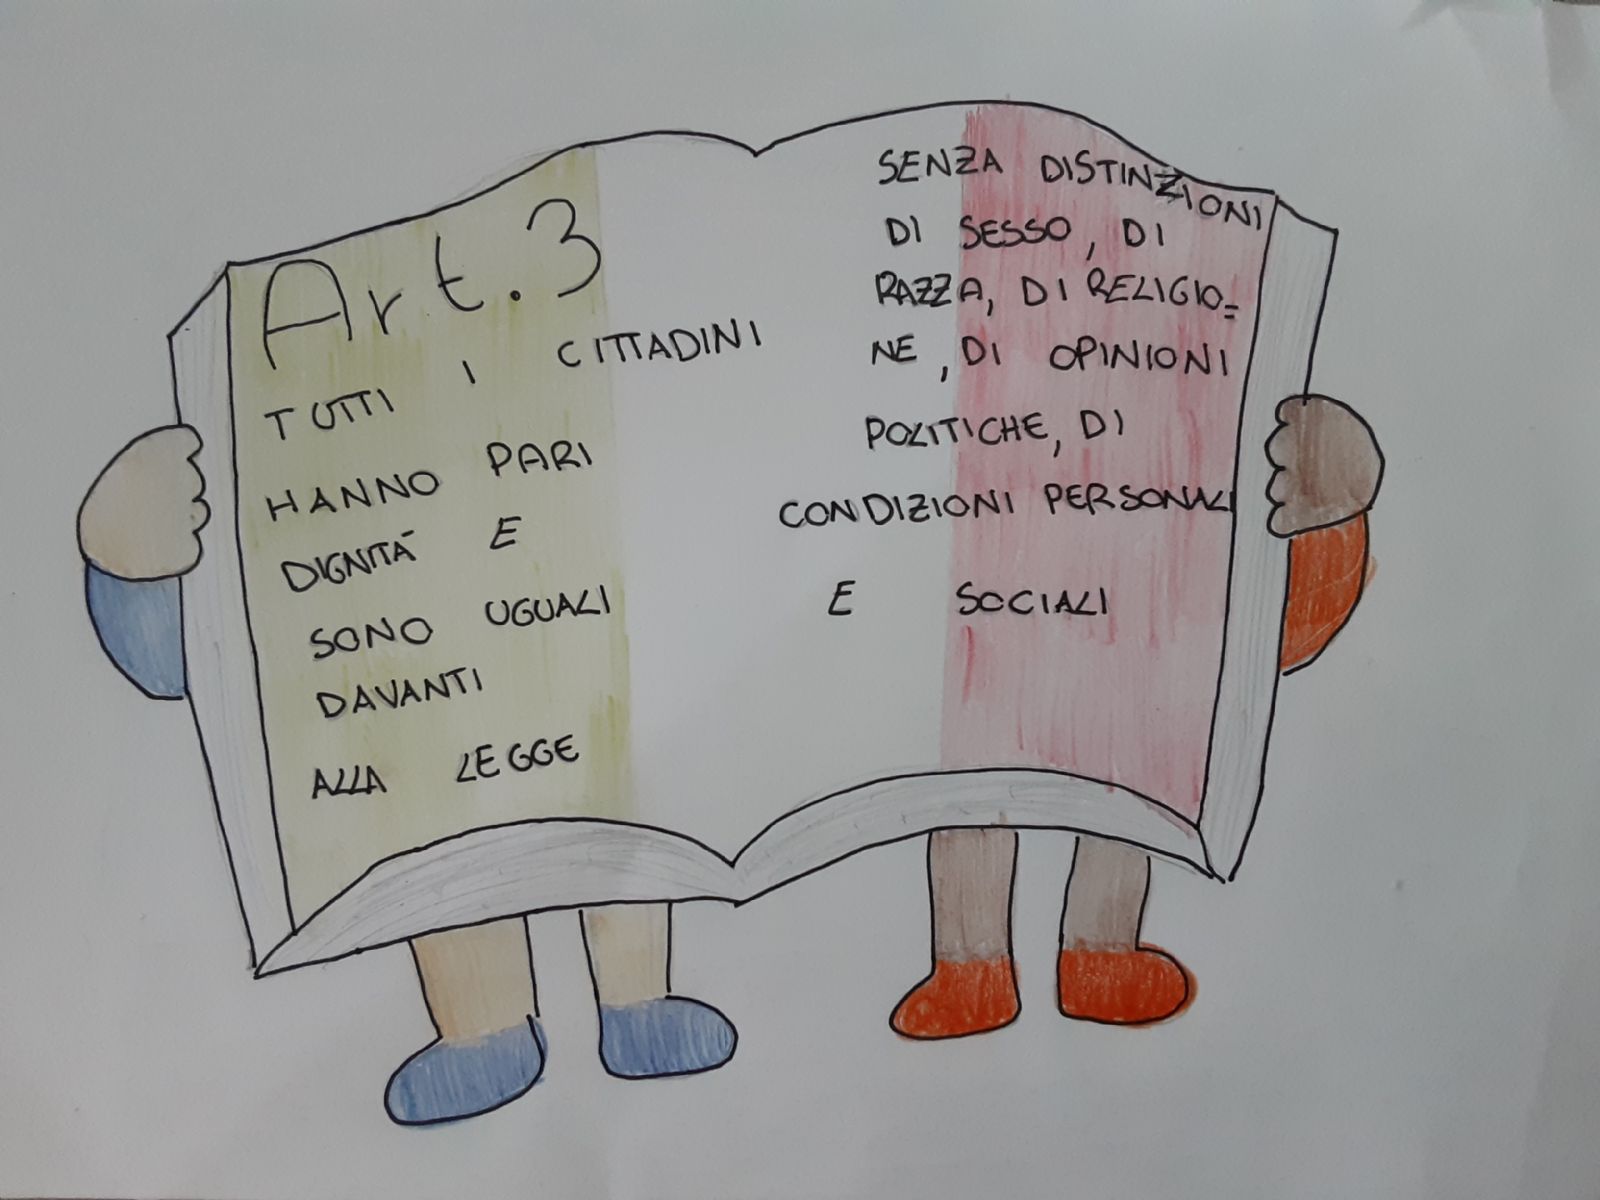 Art. 3
TUTTI I CITTADINI
HANNO PARI
DIGNITA' E
SONO UGUALI
DAVANTI
ALLA LEGGE
SENZA DISTINZIONI
DI SESSO, DI
RAZZA, DI RELIGIO=
NE, DI OPINIONI
POLITICHE, DI
CONDIZIONI PERSONALI
E SOCIALI